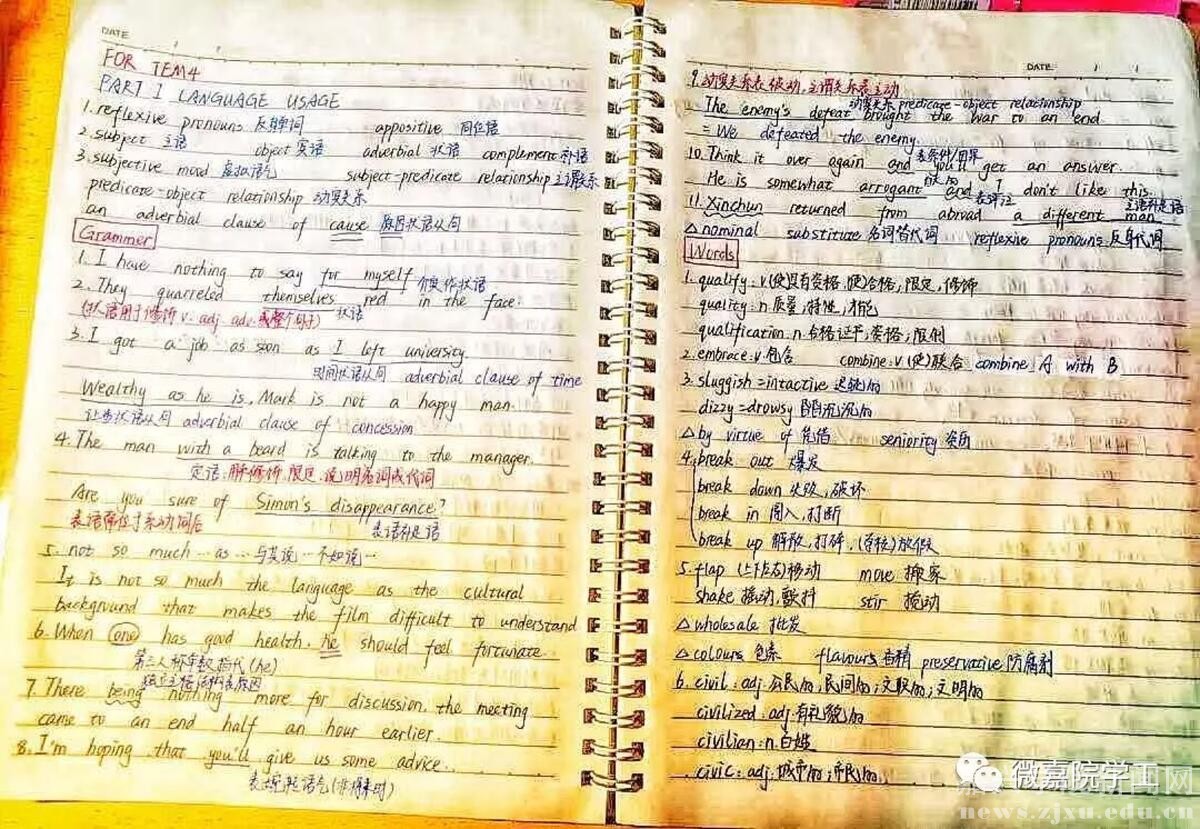 DATE
FOR TEM4
PART I LANGUAGE USAGE
1. reflexive pronouns 反身词 appositive 同位语
2. subject 主语 object 宾语 adverbial 状语 complement 补语
3. subjective mood 虚拟语气 subject-predicate relationship 主谓关系
predicate-object relationship 动宾关系
an adverbial clause of cause 原因状语从句
Grammer
1. I have nothing to say for myself 介宾作状语
2. They quarreled themselves red in the face.
状语
(状语用于修饰 v. adj. adv. 或整个句子)
3. I got a job as soon as I left university
时间状语从句 adverbial clause of time
Wealthy as he is, Mark is not a happy man.
让步状语从句 adverbial clause of concession
4. The man with a beard is talking to the manager.
定语: 用来修饰,限定,说明名词或代词
Are you sure of Simon's disappearance?
表语常位于系动词后 表语补足语
5. not so much … as … 与其说…不如说…
It is not so much the language as the cultural
background that makes the film difficult to understand
6. When one has good health, he should feel fortunate.
第三人称单数指代 (he)
独立主格结构表原因
7. There being nothing more for discussion, the meeting
came to an end half an hour earlier.
8. I'm hoping that you'll give us some advice.
表委婉语气 (非将来时)
DATE
9. 动宾关系表被动,主谓关系表主动
动宾关系 predicate-object relationship
The enemy's defeat brought the war to an end
= We defeated the enemy.
表条件/因果
10. Think it over again and you'll get an answer.
He is somewhat arrogant and I don't like this.
表评注
主语补足语
11. Xinchun returned from abroad a different man
△ nominal substitute 名词替代词 reflexive pronouns 反身代词
Words
1. qualify: v. (使)具有资格,(使)合格,限定,修饰
quality: n 质量,特性,才能
qualification: n. 合格证书,资格,限制
2. embrace: v. 包含 combine: v (使)联合 combine A with B
3. sluggish = intactive 迟缓的
dizzy = drowsy 昏昏沉沉的
△ by virtue of 凭借 seniority 资历
4. break out 爆发
break down 失败,破坏
break in 闯入,打断
break up 解散,打碎,(学校)放假
5. flap (上下左右)移动 move 搬家
shake 摇动,颤抖 stir 搅动
△ wholesale 批发
△ colours 色素 flavours 香精 preservative 防腐剂
6. civil: adj. 公民的,民间的;文职的;文明的
civilized: adj. 有礼貌的
civilian: n. 百姓
civic: adj. 城市的;市民的
微嘉院学工
news.zjxu.edu.cn